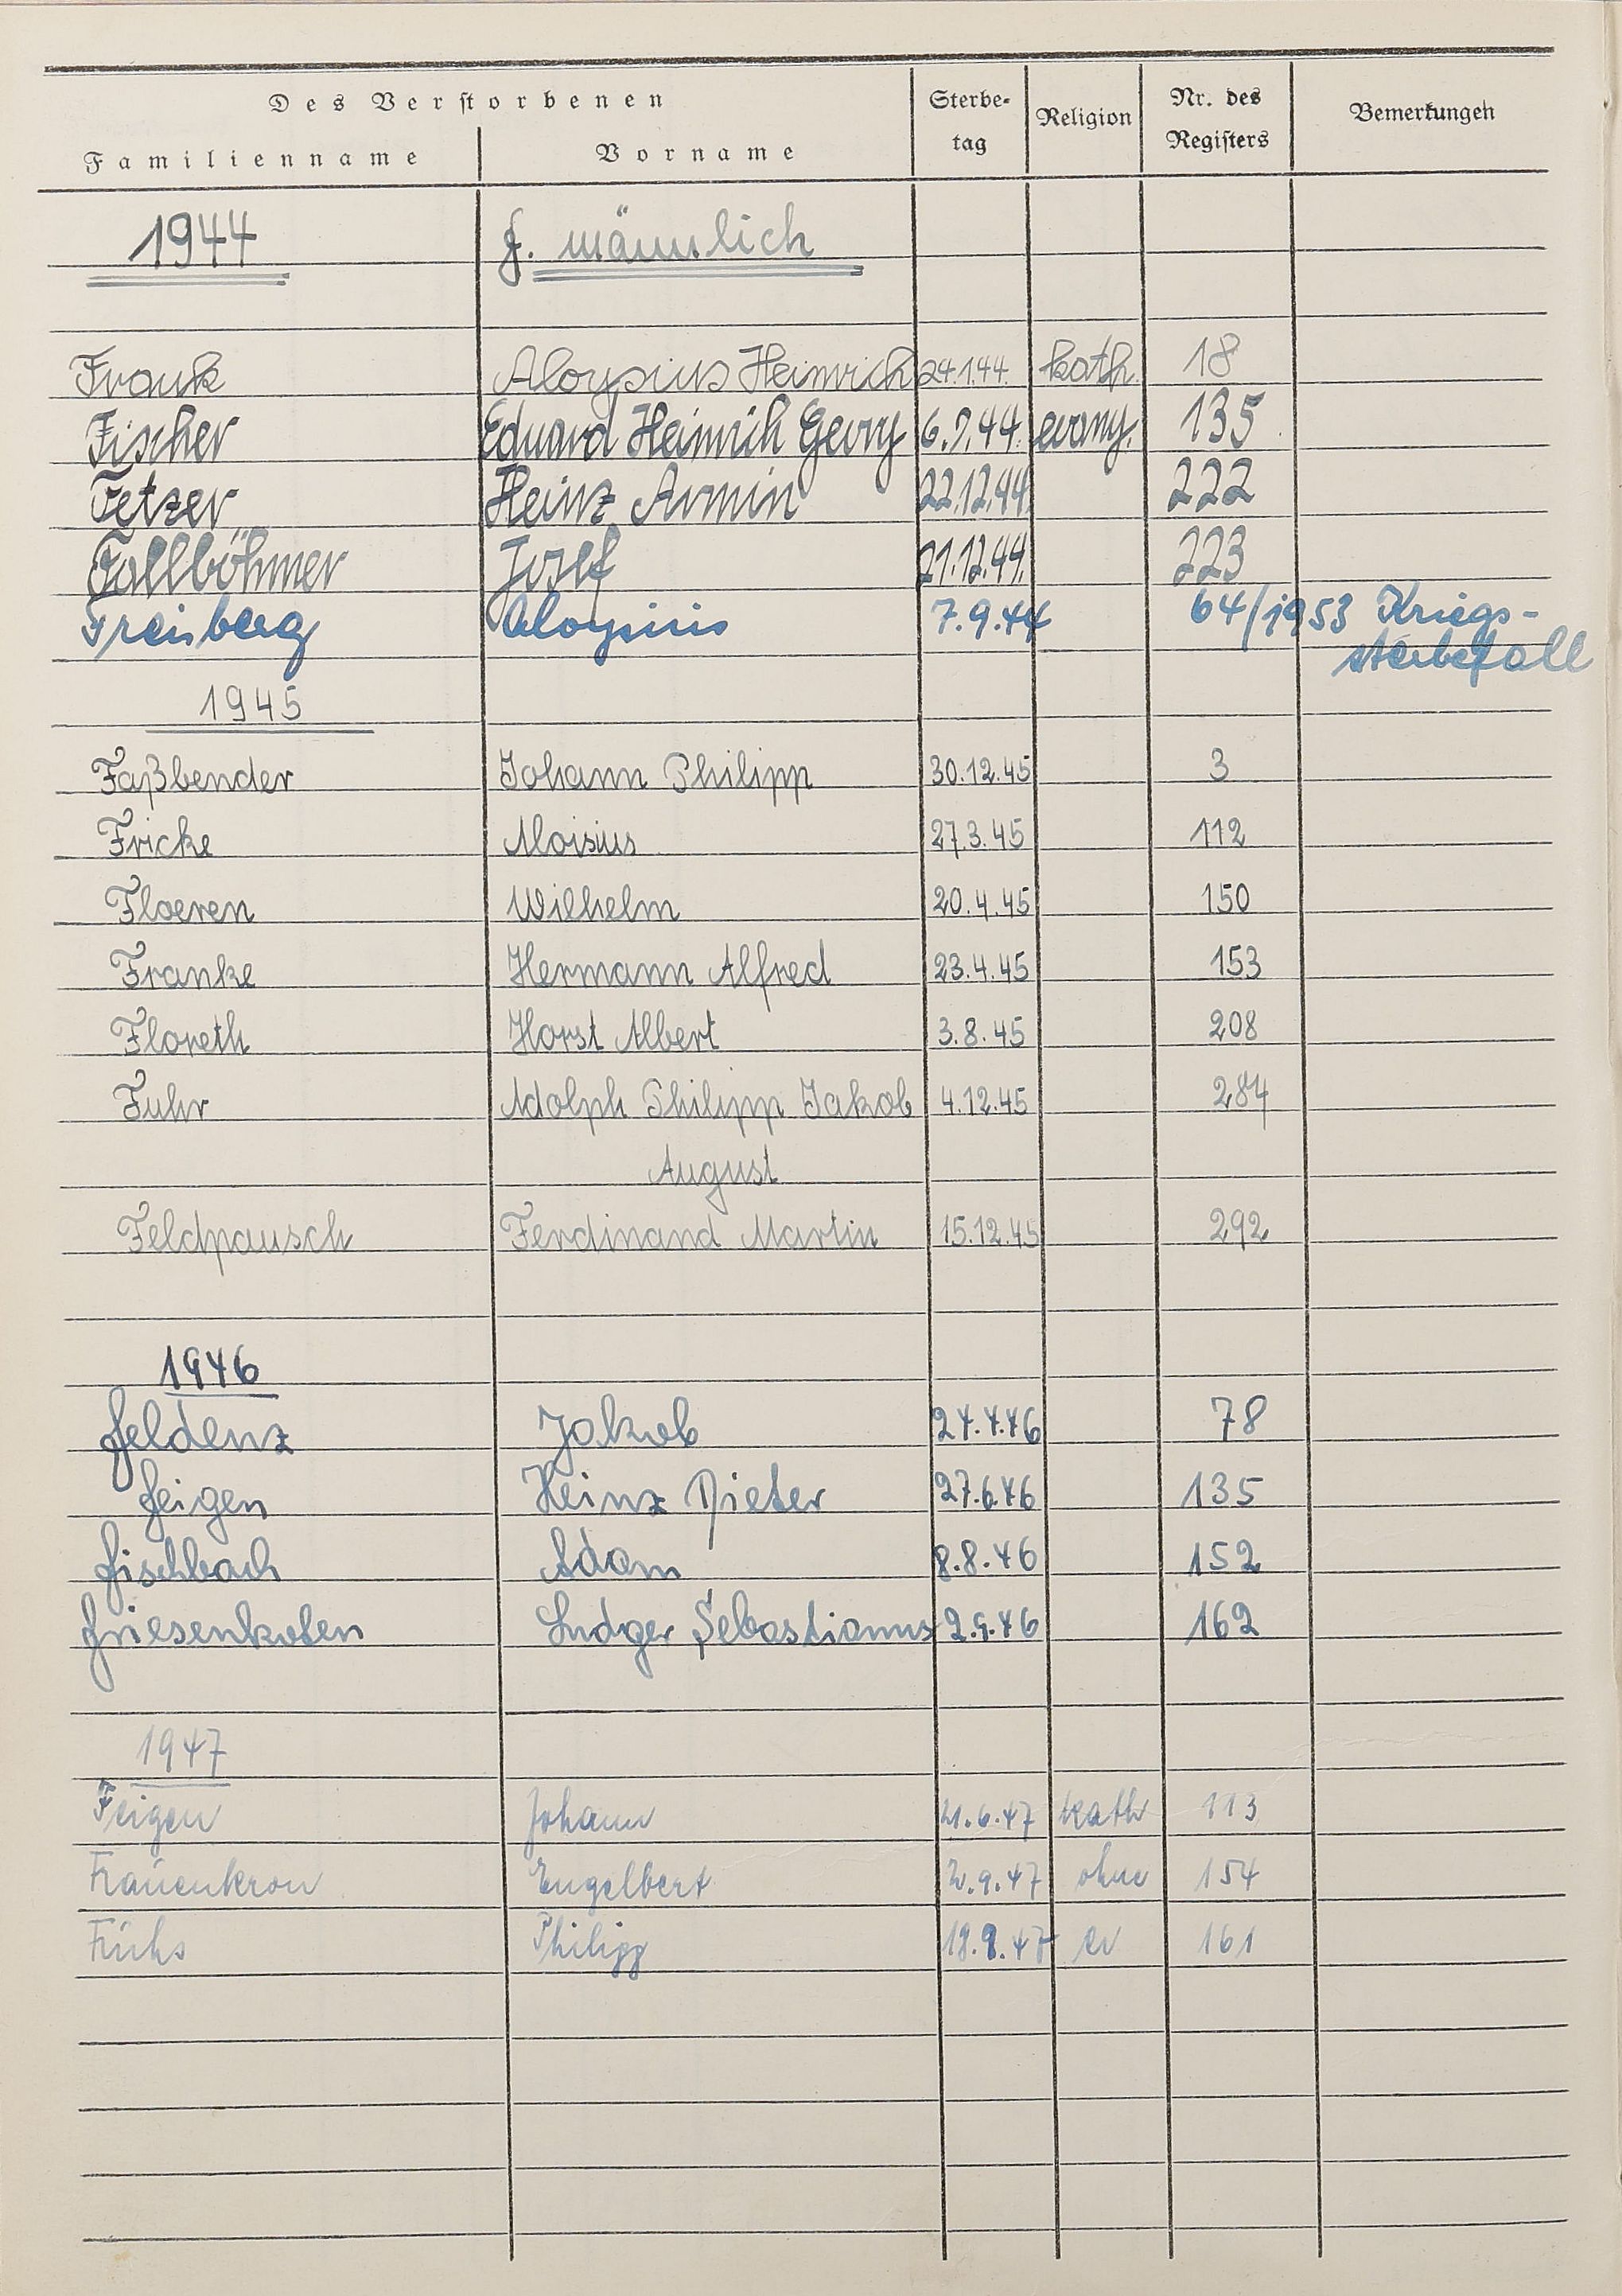 Des Verstorbenen
Sterbe-
tag
Religion
Nr. des
Registers
Bemerkungen
Familienname Vorname
1944 F. männlich
Frank Aloysius Heinrich 24.1.44. kath. 18
Fischer Eduard Heinrich Georg 6.9.44. evang. 135
Fetzer Heinz Armin 22.12.44. 222
Fallböhmer Josef 21.12.44. 223
Freiberg Aloysius 7.9.44 64/1953 Kriegs-
sterbefall
1945
Faßbender Johann Philipp 30.12.45 3
Fricke Aloisius 27.3.45 112
Floeren Wilhelm 20.4.45 150
Franke Hermann Alfred 23.4.45 153
Floreth Horst Albert 3.8.45 208
Fuhr Adolph Philipp Jakob 4.12.45 284
August
Feldpausch Ferdinand Martin 15.12.45 292
1946
Feldenz Jakob 24.4.46 78
Feigen Heinz Dieter 27.6.46 135
Fischbach Adam 8.8.46 152
Friesenkoten Ludger Sebastianus 2.9.46 162
1947
Feigen Johann 21.6.47 kath 113
Frauenkron Engelbert 2.9.47 ohne 154
Fuchs Philipp 18.9.47 ev 161